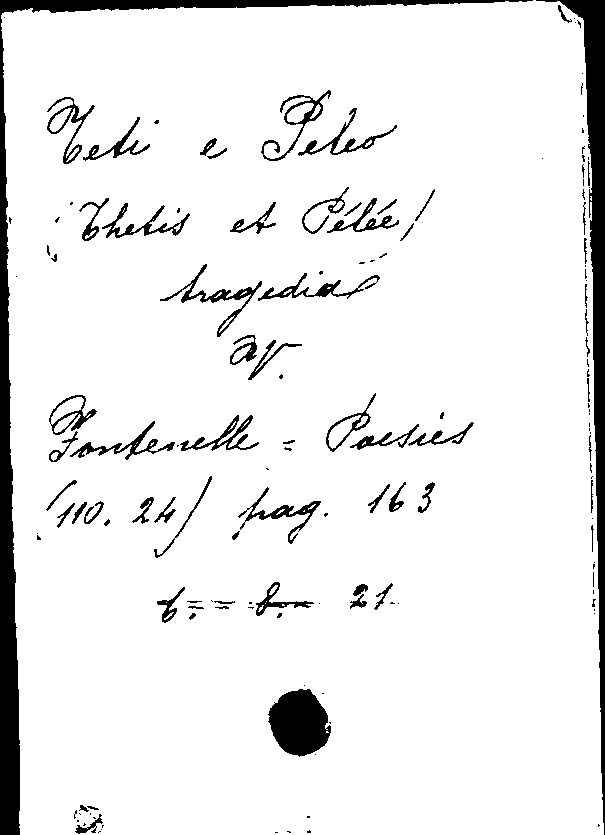 Teti e Peleo
(Thetis et Pélée)
tragedia
Fontenelle = Poesies
(110. 24) pag. 163
6. = = 8. = 21.